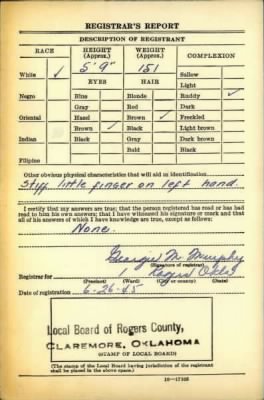 REGISTRAR'S REPORT
DESCRIPTION OF REGISTRANT
RACE HEIGHT (Approx.) WEIGHT (Approx.) COMPLEXION
5' 9" 151
White ✓ Sallow
EYES HAIR Light
Negro Blue Blonde Ruddy ✓
Gray Red Dark
Oriental Hazel Brown ✓ Freckled
Brown ✓ Black Light brown
Indian Black Gray Dark brown
Bald Black
Filipino
Other obvious physical characteristics that will aid in identification
Stiff little finger on left hand.
I certify that my answers are true; that the person registered has read or has
had read to him his own answers; that I have witnessed his signature or mark and that
all of his answers of which I have knowledge are true, except as follows:
None.
George M. Murphy
(Signature of registrar)
Registrar for 1 Rogers Okla
(Precinct) (Ward) (City or county) (State)
Date of registration 6-26-45
Local Board of Rogers County,
CLAREMORE, OKLAHOMA
(STAMP OF LOCAL BOARD)
(The stamp of the Local Board having jurisdiction of the registrant
shall be placed in the above space.)